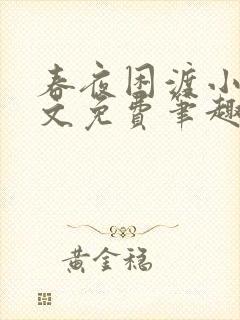 春夜困渡小
文免费笔趣
黄金稳